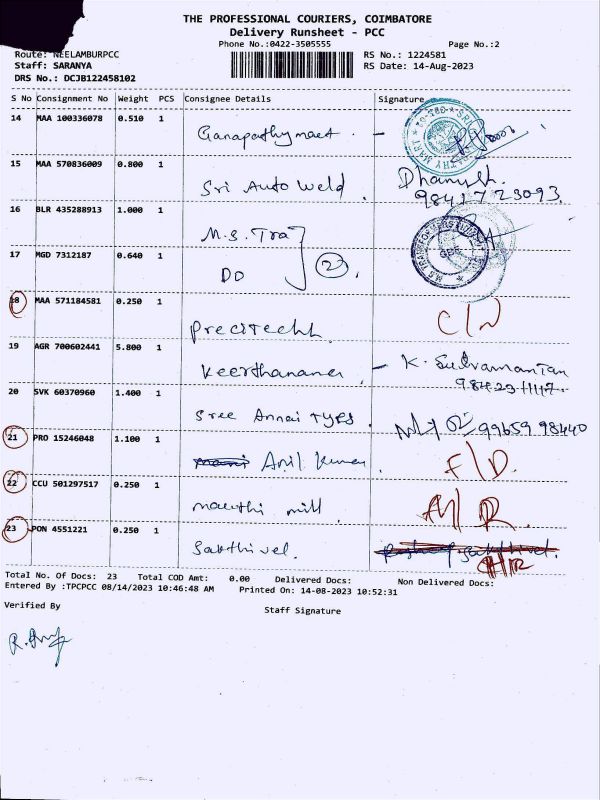 THE PROFESSIONAL COURIERS, COIMBATORE
Delivery Runsheet - PCC
Phone No.:0422-3505555 Page No.:2
Route: NEELAMBURPCC RS No.: 1224581
Staff: SARANYA RS Date: 14-Aug-2023
DRS No.: DCJB122458102
S No Consignment No Weight PCS Consignee Details Signature
14 MAA 100336078 0.510 1 Ganapathy mart -
15 MAA 570836009 0.800 1 Sri Auto Weld. Dhanush.
9841723093.
16 BLR 435288913 1.000 1 M.S. Tra
17 MGD 7312187 0.640 1 DO 23.
18 MAA 571184581 0.250 1 Precitechh C/N
19 AGR 700602441 5.800 1 Keerthanana - K. Subramanian
20 SVK 60370960 1.400 1 Sree Annai Tyres. 99659 98440
21 PRO 15246048 1.100 1 Anil Kumar. F/D.
22 CCU 501297517 0.250 1 maruthi mill.
23 PON 4551221 0.250 1 Sakthivel.
Total No. Of Docs: 23 Total COD Amt: 0.00 Delivered Docs: Non Delivered Docs:
Entered By :TPCPCC 08/14/2023 10:46:48 AM Printed On: 14-08-2023 10:52:31
Verified By Staff Signature